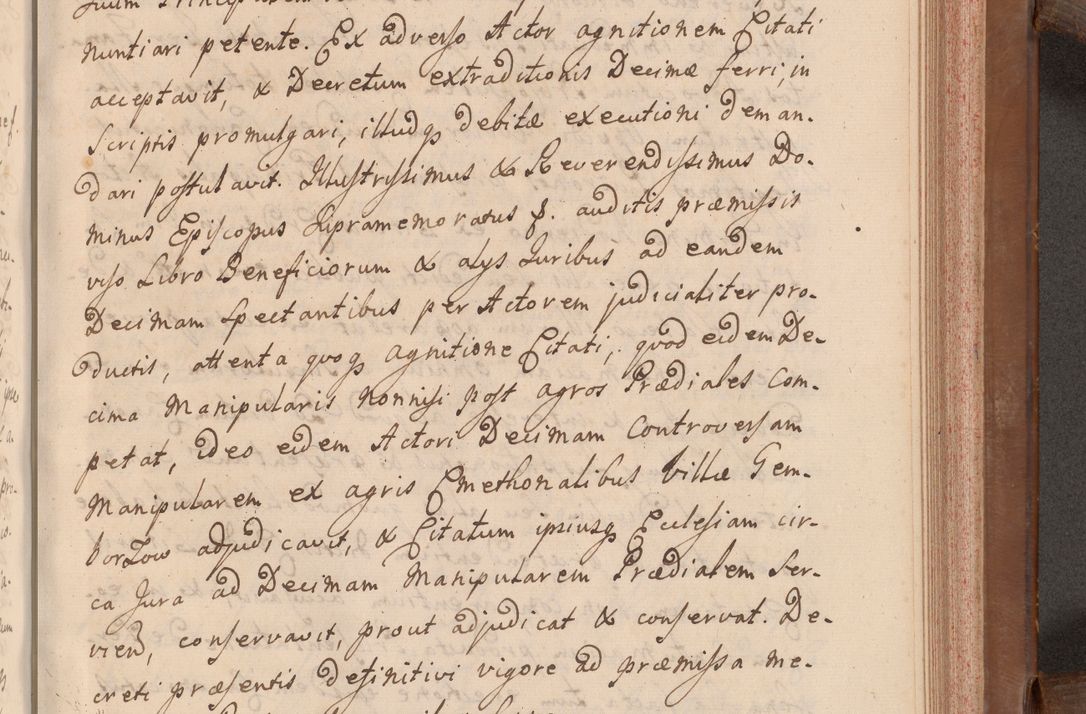 nuntiari petente. Ex adverso Actor agnitionem Citati
acceptavit, & Decretum extraditionis Decimæ ferri, in
Scriptis promulgari, illudq3 debitæ executioni deman-
dari postulavit. Illustrissimus & Reverendissimus Do-
minus Episcopus supramemoratus ß. auditis præmissis
viso Libro Beneficiorum & alys Juribus ad eandem
Decimam spectantibus per Actorem judicialiter pro-
ductis, attenta quoq3 agnitione Citati, quod eidem De-
cima Manipularis nonnisi post agros Prædiales com-
petat, ideo eidem Actori Decimam Controversam
Manipularem ex agris Cmethonalibus Villæ Gem-
borzow adjudicavit, & Citatum ipsiusq3 Eclesiam cir-
ca Jura ad Decimam Manipularem Prædialem ser-
vien3, conservavit, prout adjudicat & conservat. De-
creti præsentis definitivi vigore ad præmissa me-